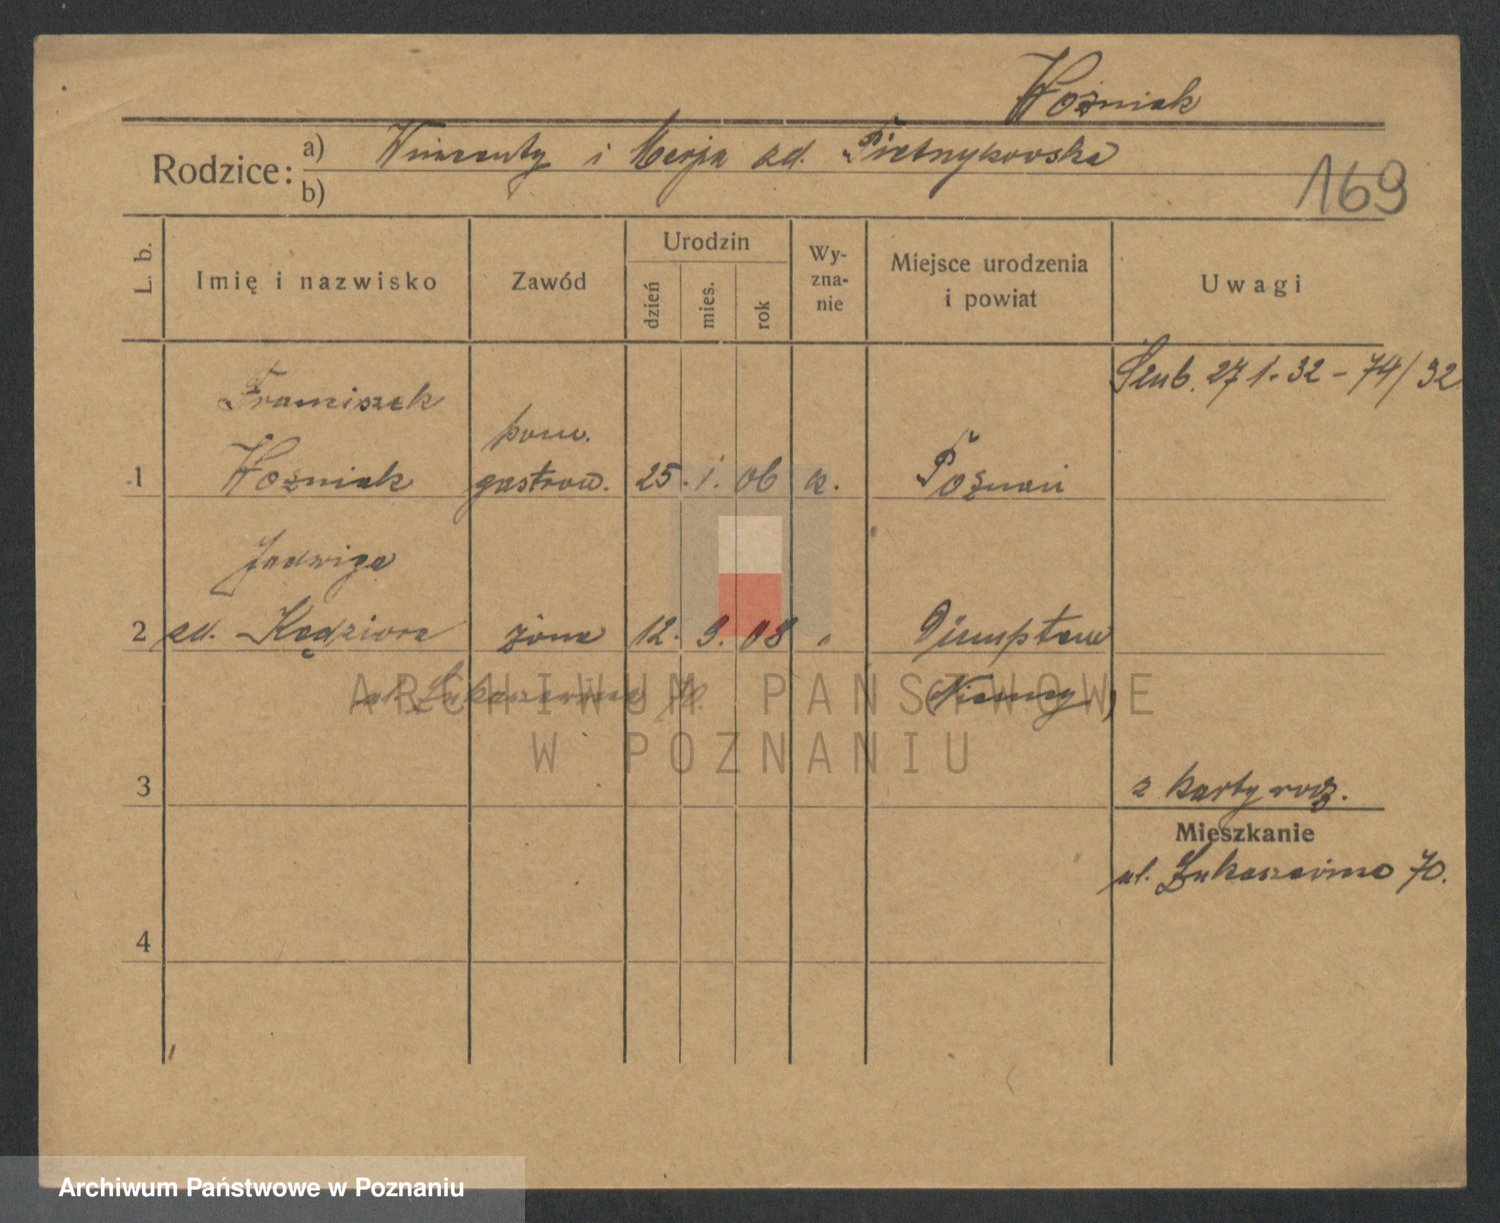 Woźniak
Rodzice: a) Wincenty i Marja zd. Pietrzykowska
b)
169
L. b.
Imię i nazwisko
Zawód
Urodzin
dzień
mies.
rok
Wy-
zna-
nie
Miejsce urodzenia
i powiat
Uwagi
Ślub. 27 1. 32 - 74/32
Franciszek
pow.
1 Woźniak gastrow. 25. 1. 06 k. Poznań
Jadwiga
2 zd. Kędziora żona 12. 9. 08 „
ul. Łukaszewicza 70.
(Niemcy)
ARCHIWUM PAŃSTWOWE
W POZNANIU
3
z karty rodz.
Mieszkanie
ul. Łukaszewicza 70.
4
Archiwum Państwowe w Poznaniu